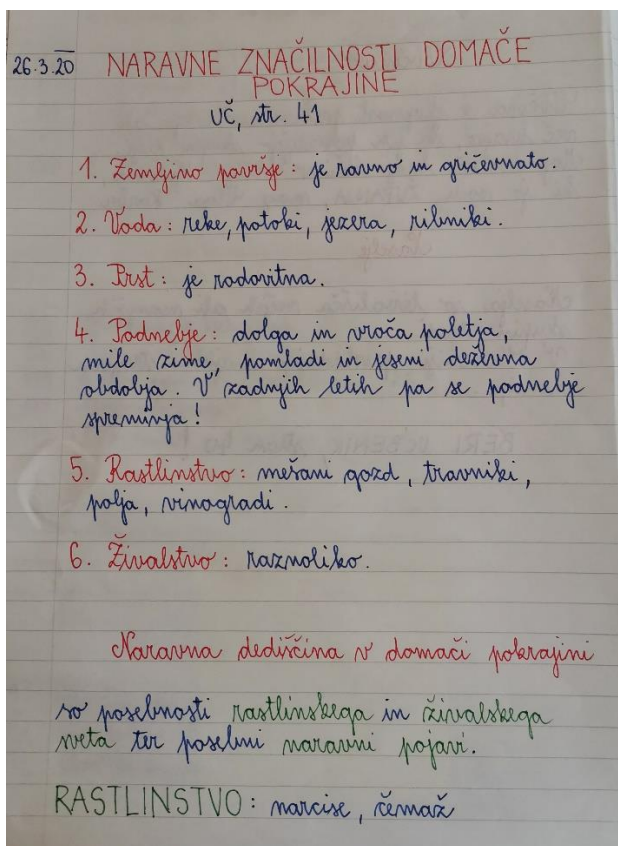 26.3.20 NARAVNE ZNAČILNOSTI DOMAČE
POKRAJINE
UČ, str. 41
1. Zemljino površje : je ravno in gričevnato.
2. Voda : reke, potoki, jezera, ribniki.
3. Prst : je rodovitna.
4. Podnebje : dolga in vroča poletja,
mile zime, pomladi in jeseni deževna
obdobja. V zadnjih letih pa se podnebje
spreminja!
5. Rastlinstvo : mešani gozd, travniki,
polja, vinogradi.
6. Živalstvo : raznoliko.
Naravna dediščina v domači pokrajini
so posebnosti rastlinskega in živalskega
sveta ter posebni naravni pojavi.
RASTLINSTVO : narcise, čemaž